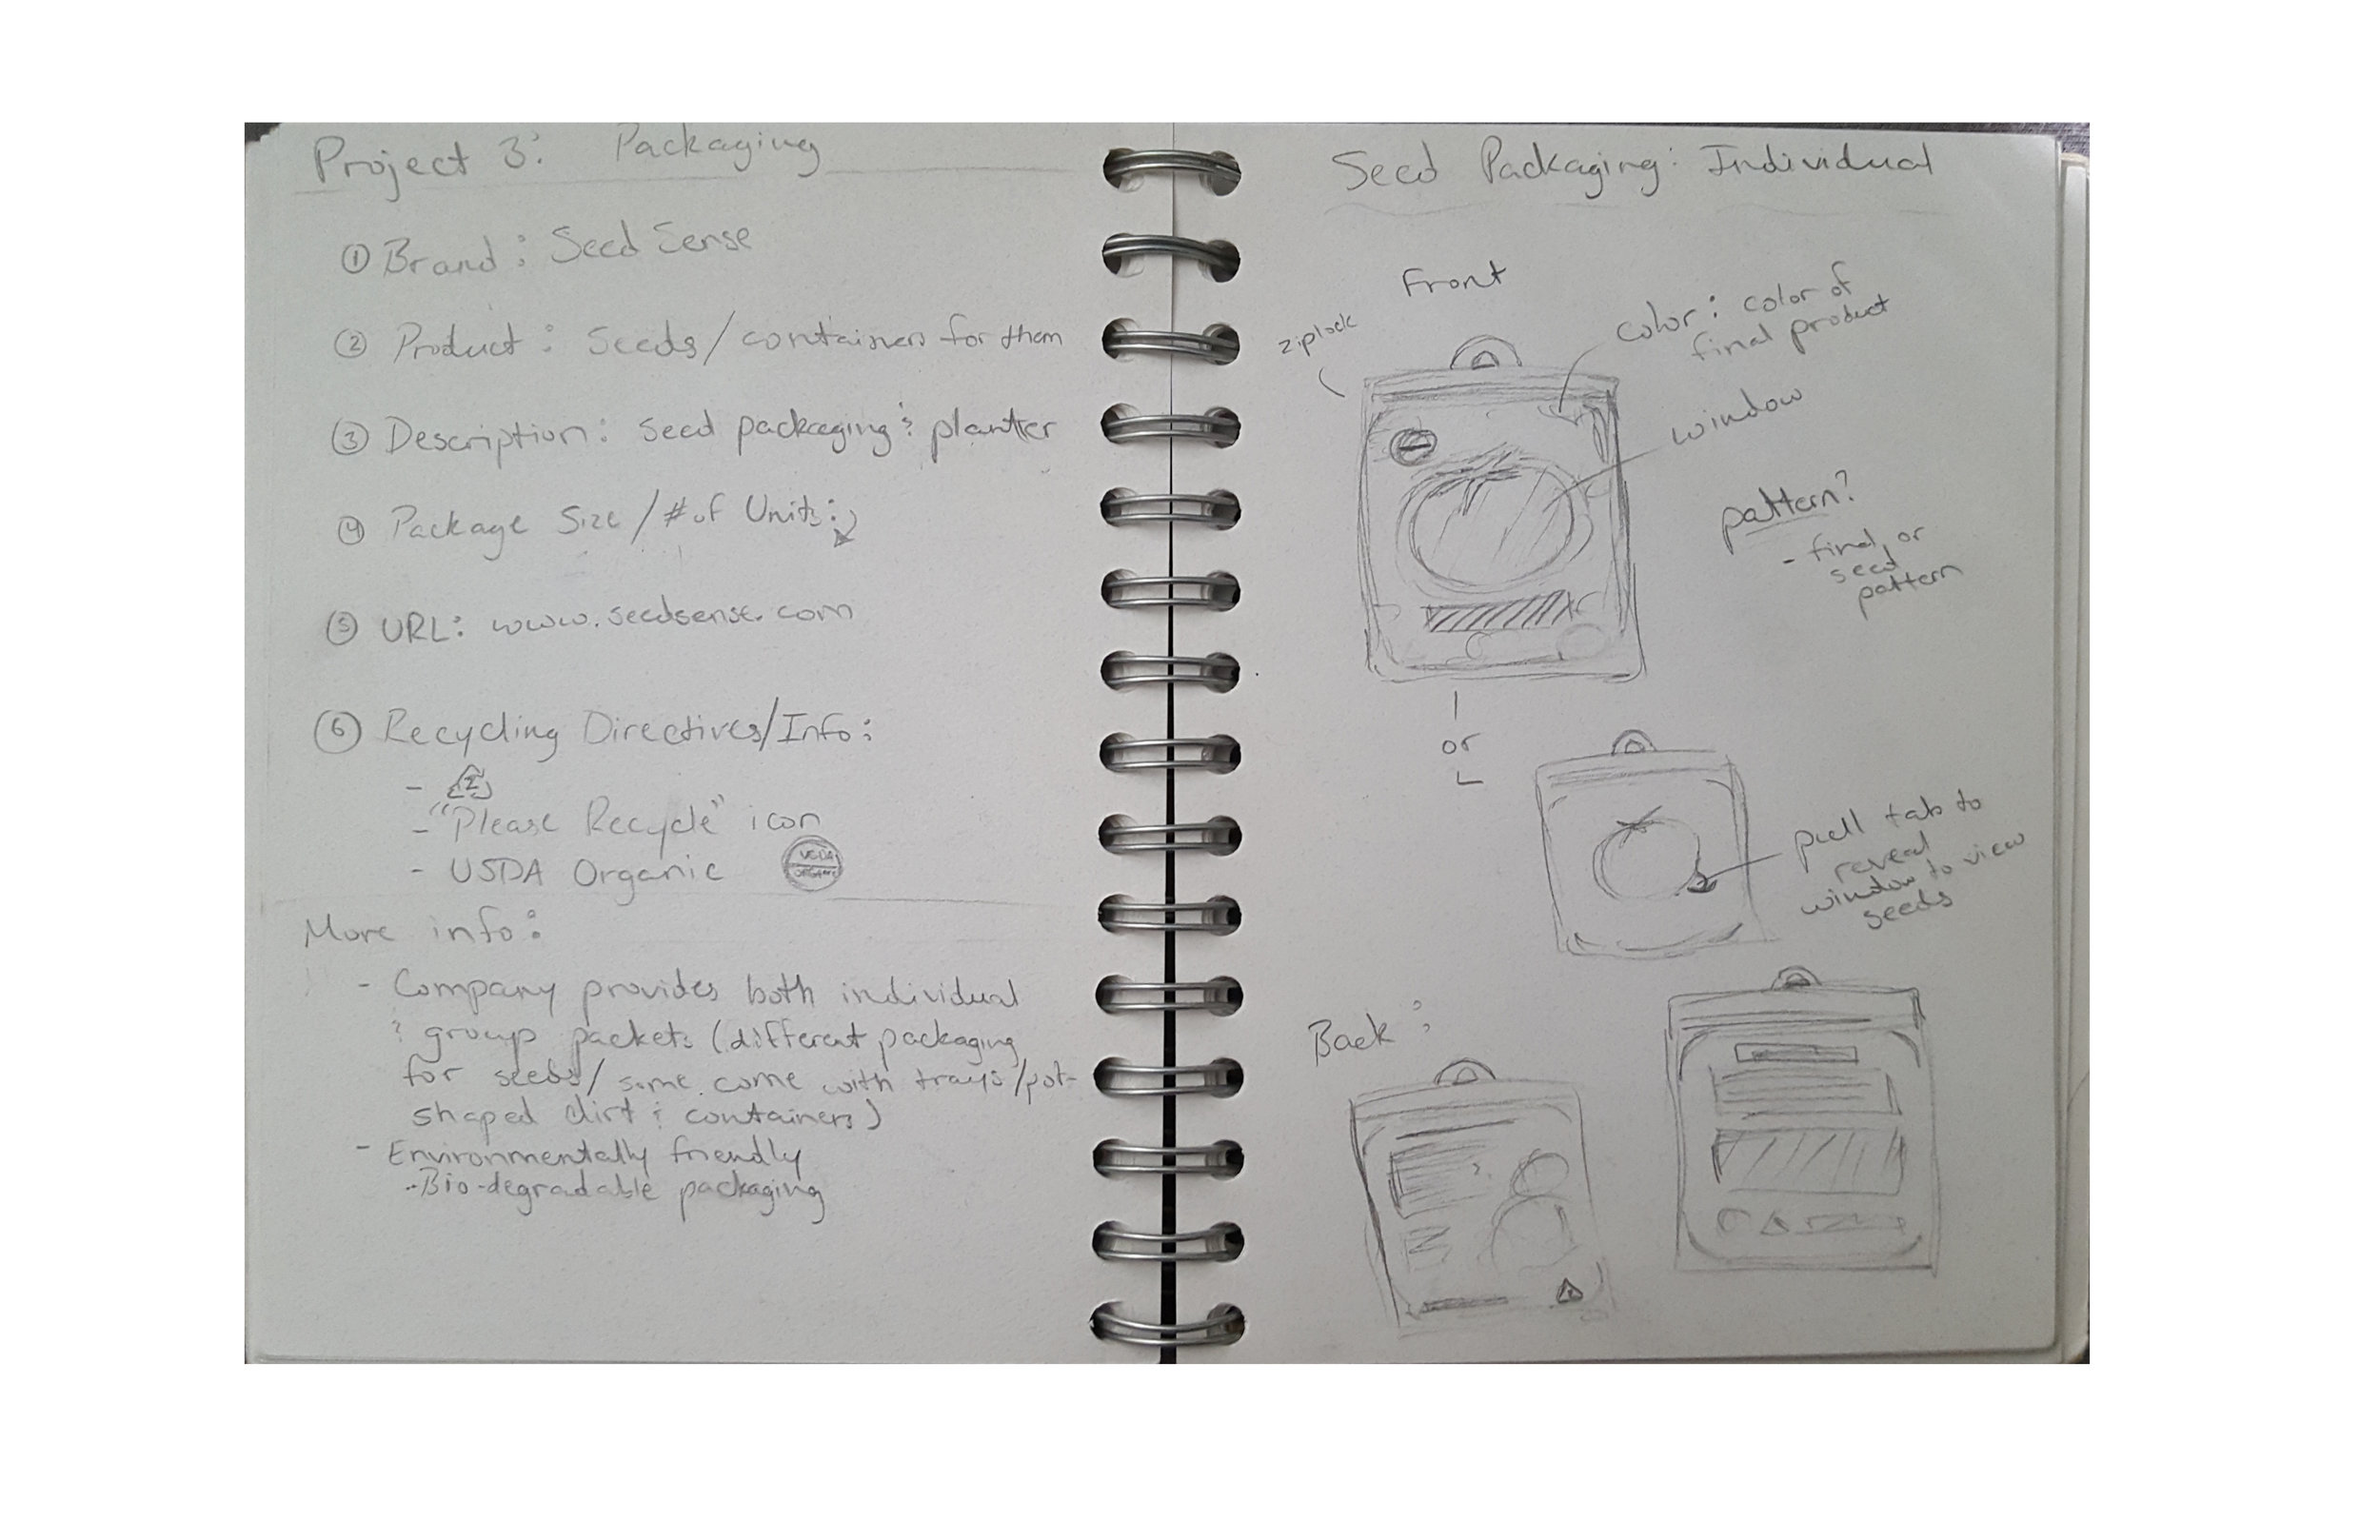 Project 3: Packaging
① Brand: Seed Sense
② Product: Seeds/containers for them
③ Description: seed packaging & planter
④ Package Size/# of Units:
⑤ URL: www.seedsense.com
⑥ Recycling Directives/Info:
- 2
- "Please Recycle" icon
- USDA Organic
USDA
ORGANIC
More info:
- Company provides both individual
& group packets (different packaging
for seeds/some come with trays/pot-
shaped dirt & containers)
- Environmentally friendly
- Bio-degradable packaging
Seed Packaging: Individual
Front
ziplock
color: color of
final product
window
pattern?
- final or
seed
pattern
or
pull tab to
reveal
window to view
seeds
Back: